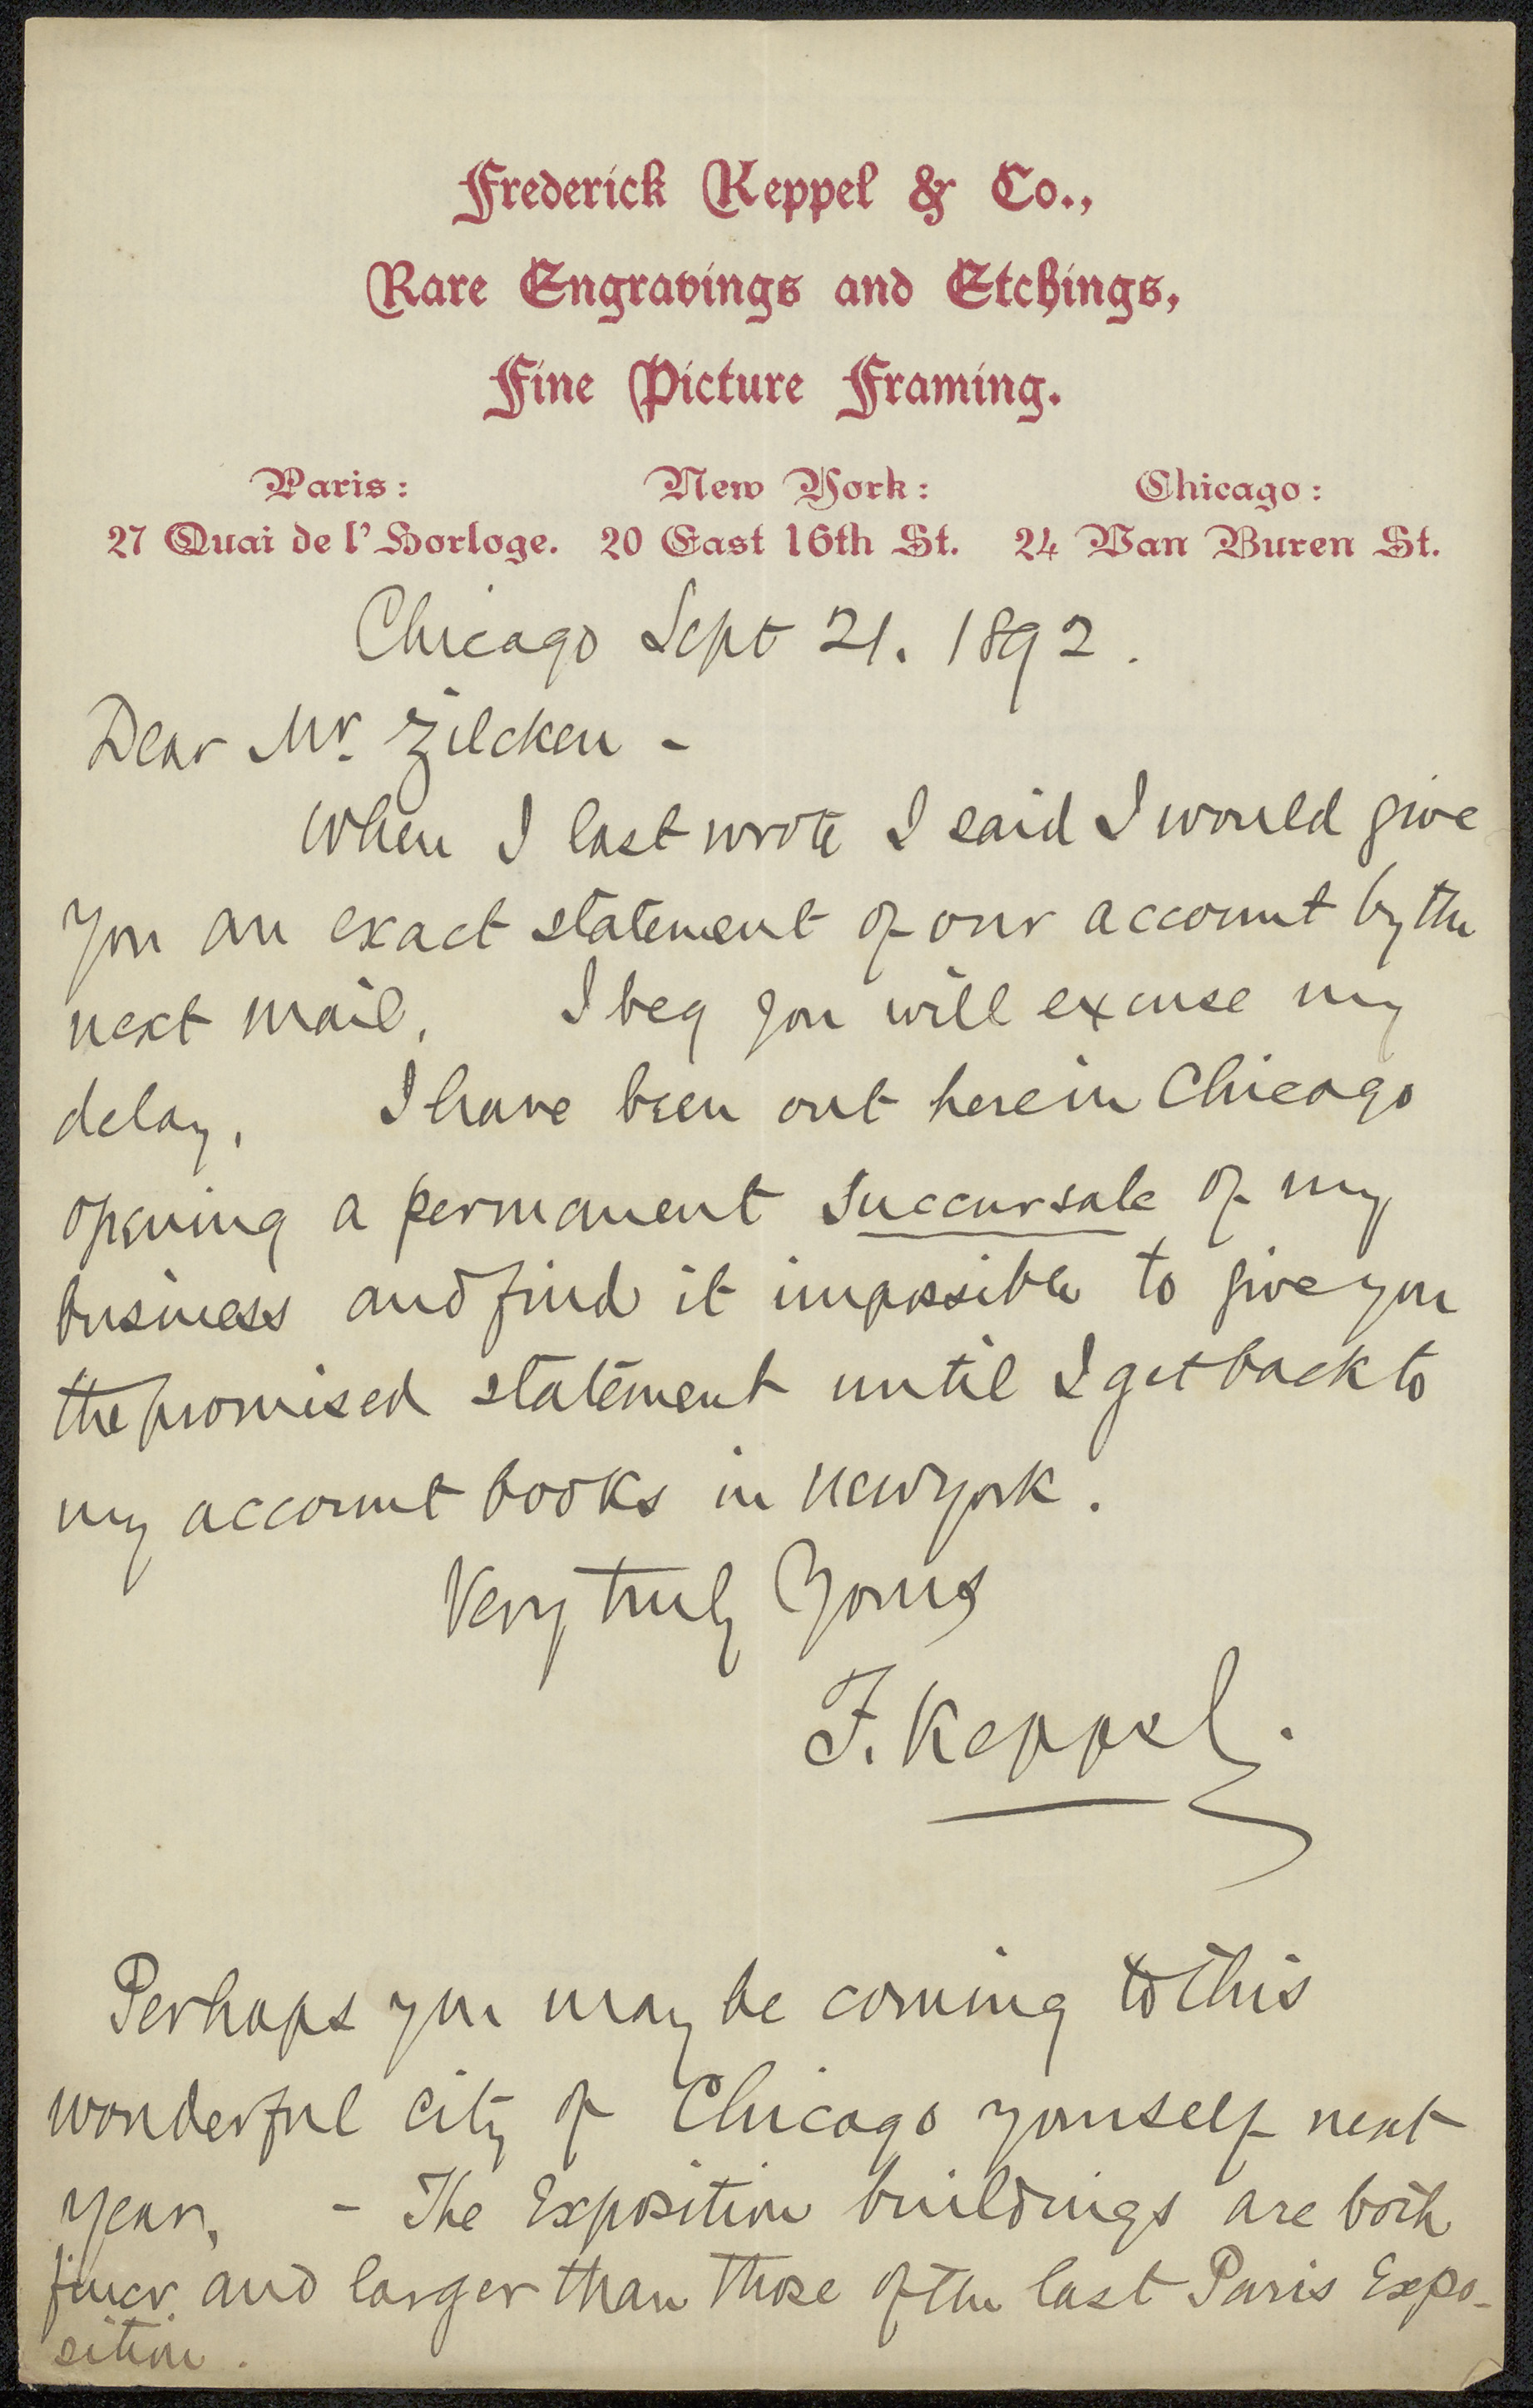 Frederick Keppel & Co.,
Rare Engravings and Etchings,
Fine Picture Framing.
Paris: New York: Chicago:
27 Quai de l'Horloge. 20 East 16th St. 24 Van Buren St.
Chicago Sept 21. 1892.
Dear Mr. Zilcken -
When I last wrote I said I would give
you an exact statement of our account by the
next mail. I beg you will excuse my
delay. I have been out here in Chicago
opening a permanent succursale of my
business and find it impossible to give you
the promised statement until I get back to
my account books in New York.
Very truly Yours
F. Keppel.
Perhaps you may be coming to this
wonderful city of Chicago yourself next
year. - The Exposition buildings are both
finer and larger than those of the last Paris Expo-
sition.